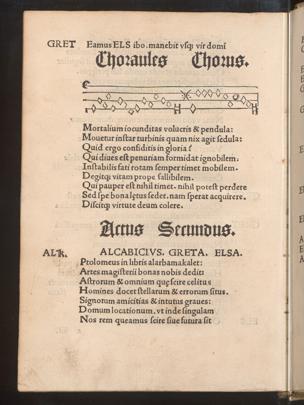 GRET Eamus ELS ibo. manebit vsq̃ vir domi
Choraules Chorus.
Mortalium iocunditas volucris & pendula:
Mouetur instar turbinis quam nix agit sedula:
Quid ergo confiditis in gloria?
Qui diues est penuriam formidat ignobilem.
Instabilis fati rotam semper timet mobilem.
Degitq̃ vitam prope fallibilem.
Qui pauper est nihil timet. nihil potest perdere
Sed spe bona lętus sedet. nam sperat acquirere.
Discitq̃ virtute deum colere.
Actus Secundus.
ALk. ALCABICIVS. GRETA. ELSA.
Ptolomeus in libris alarbamakalet:
Artes magisterii bonas nobis dedit:
Astrorum & omnium quę scire celitus
Homines docet stellarum & errorum situs.
Signorum amicitias & intutus graues:
Domum locationum. vt inde singulam
Nos rem queamus scire siue futura sit